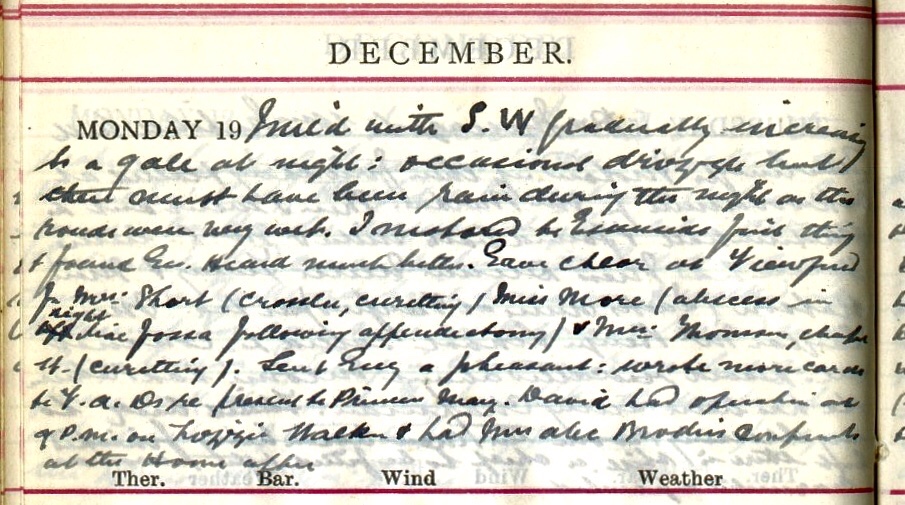 DECEMBER.
MONDAY 19 Mild with S.W gradually increasing
to a gale at night: occasional
there must have been rain during the night as the
roads were very wet. I motored to first thing
& found much better. Gave chlor at Viewfield
for Mrs Short (Crosslea, curetting) Miss More (abscess in
right
iliac fossa following appendectomy) & Mrs Thomson, chapel
St. (curetting). Sent Eng a pheasant: wrote more cards
to V.a. Ds re present to Princess May. David had operation at
9 P.M. on Lizzie & had Mrs alec Brodie's
at the Home after
Ther. Bar. Wind Weather